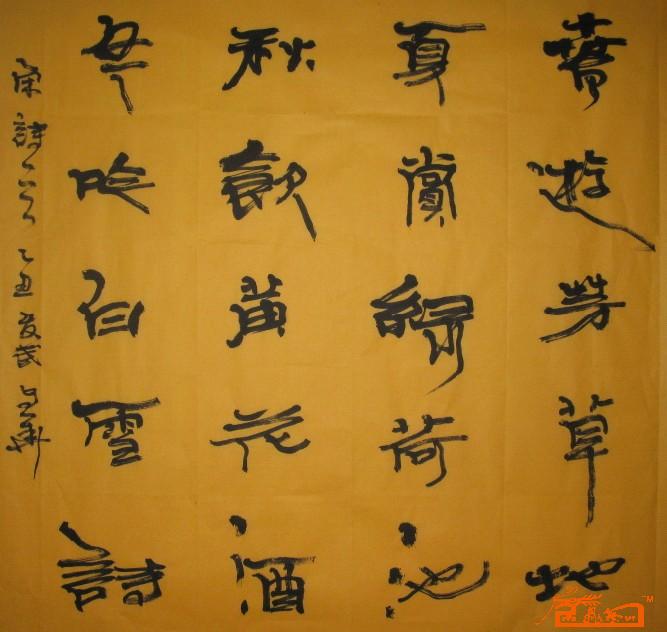 春遊芳草地
夏賞綠荷池
秋飲黃花酒
冬吟白雪詩
宋詩一首 乙丑